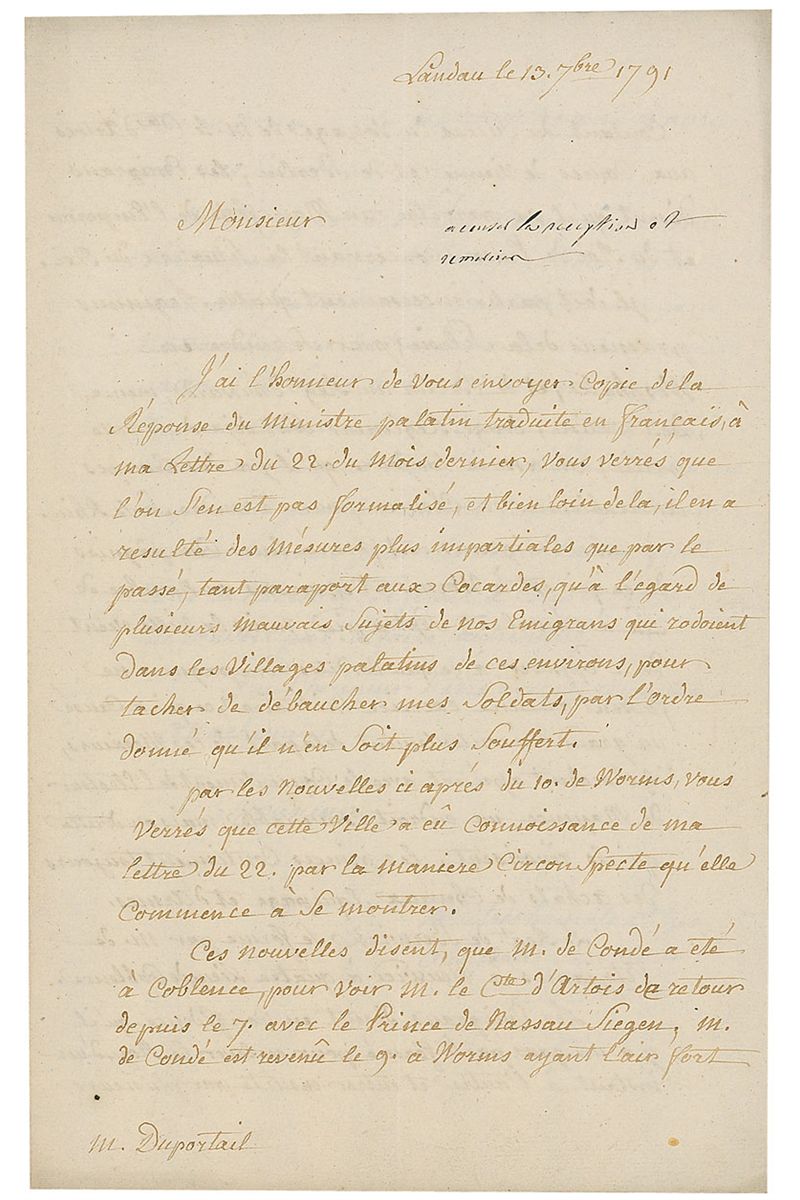 Landau le 13. 7bre 1791
Monsieur
accuser la reception et
remercier
J'ai l'honneur de vous envoyer Copie de la
Réponse du Ministre palatin traduite en francaïs, à
ma Lettre du 22. du Mois dernier, vous verrés que
l'on S'en est pas formalisé, et bien loin de la, il en a
resulté des Mésures plus impartiales que par le
passé, tant paraport aux Cocardes, qu'à l'egard de
plusieurs Mauvais Sujets de nos Emigrans qui rodoient
dans les Villages palatins de ces environs, pour
tacher de débaucher mes Soldats, par l'ordre
donné qu'il n'en Soit plus Souffert.
par les Nouvelles ci aprés du 10. de Worms, vous
Verrés que cette Ville a eû Connoissance de ma
lettre du 22. par la maniere CirconSpecte qu'elle
Commence à Se montrer.
Ces nouvelles disent, que M. de Condé a eté
a Coblence, pour voir M. le Cte d'Artois de retour
depuis le 7. avec le Prince de Nassau Siegen; M.
de Condé est revenû le 9. à Worms ayant l'air fort
M. Duportail